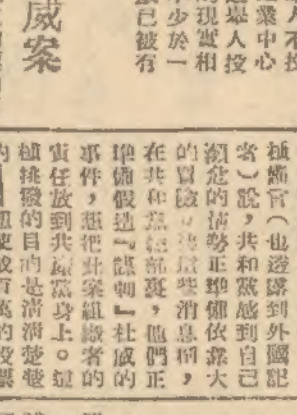 人不投
業中心
選舉人投
的現實相
少於一
已被有
威案
（也透露到外國記
者）說，共和黨感到自己
危的情勢正準備依靠大
的冒險。這些消息，
在共和黨裏，他們正
準備假造『謀』杜威的
事件，想把此案組織者的
責任放到共產黨身上。這
種挑釁的目的是清清楚楚
使成百萬的投票